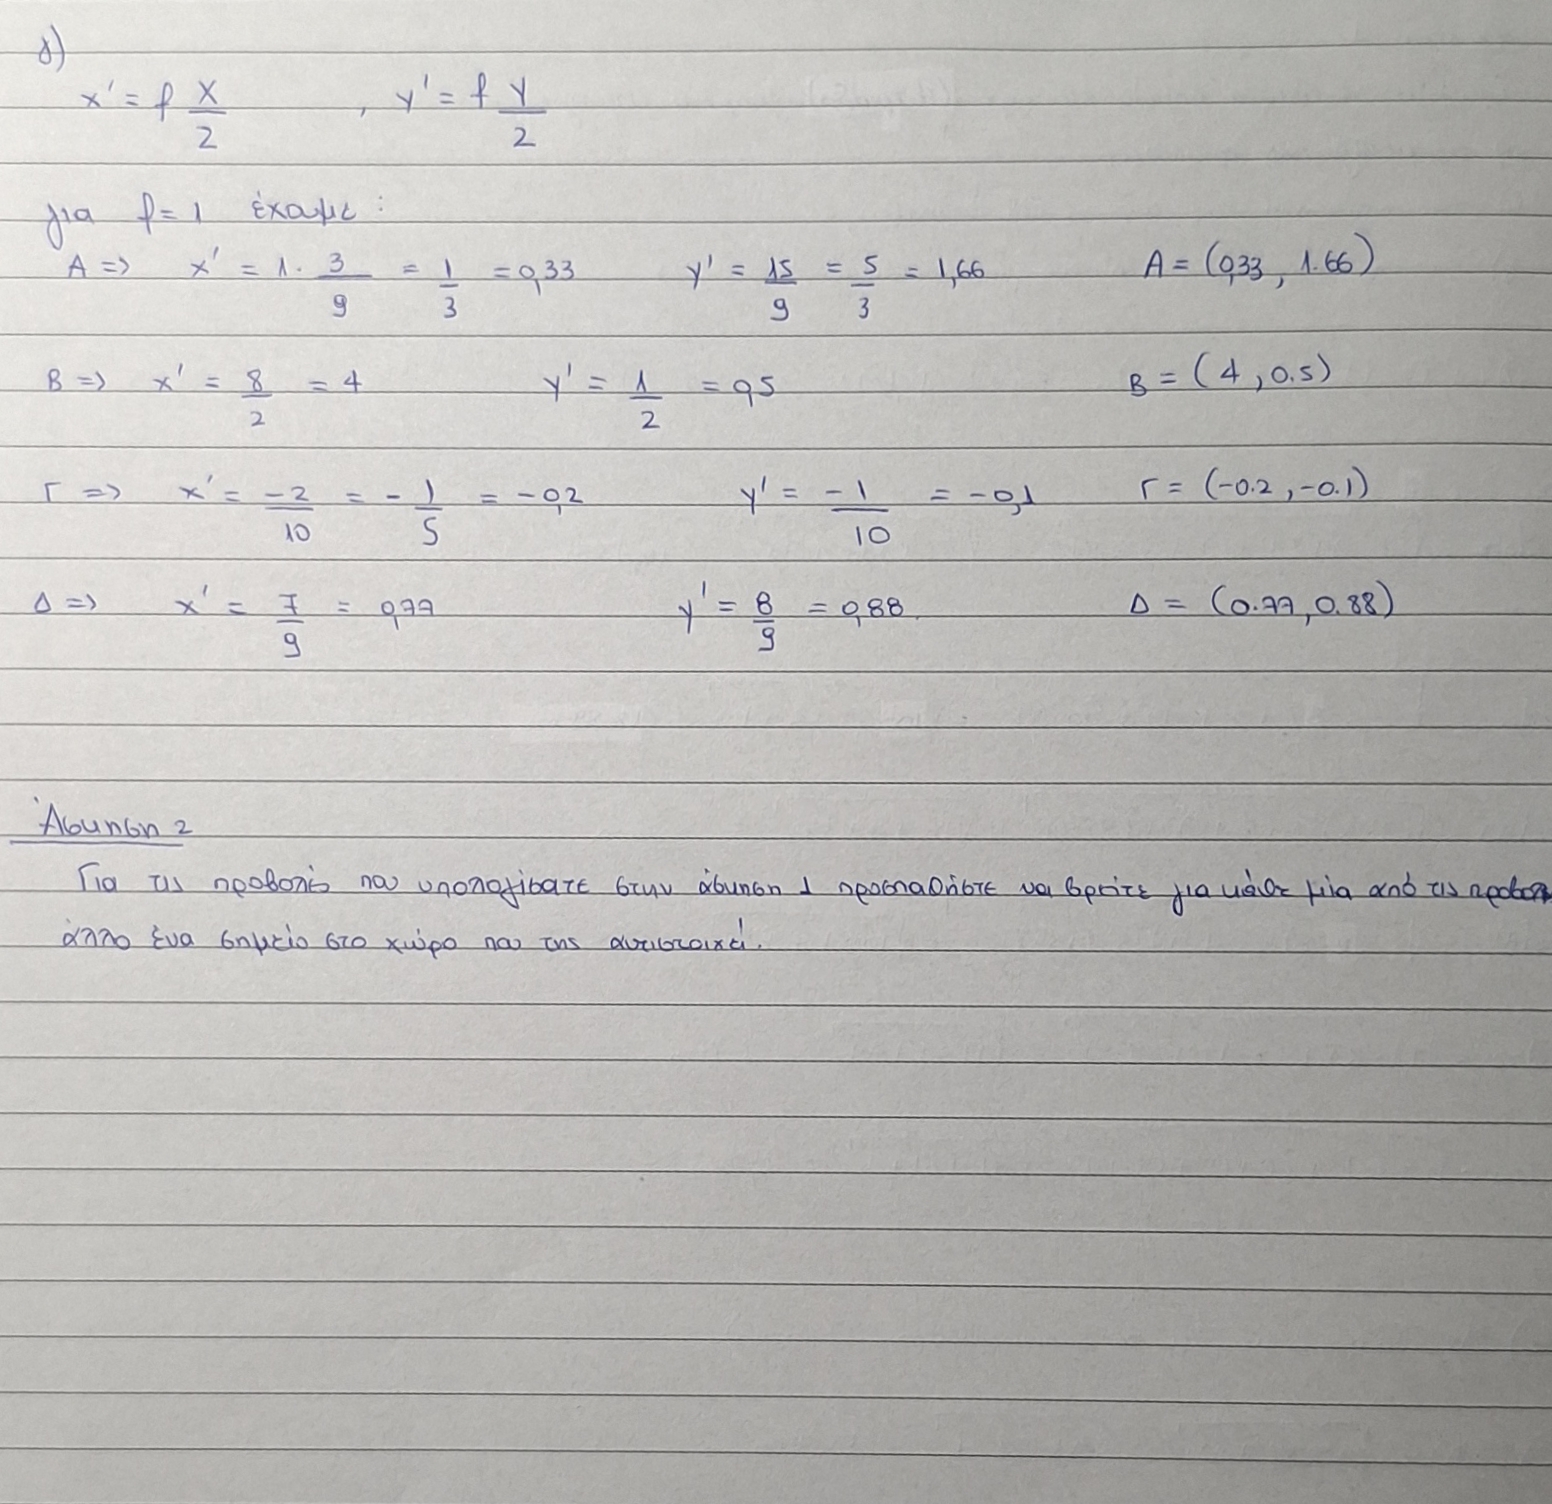 δ)
x' = f x/2 , y' = f y/2
για f = 1 έχουμε :
A => x' = 1 · 3/9 = 1/3 = 0,33 y' = 15/9 = 5/3 = 1,66 A = (0,33, 1.66)
B => x' = 8/2 = 4 y' = 1/2 = 0,5 B = (4, 0.5)
Γ => x' = -2/10 = -1/5 = -0,2 y' = -1/10 = -0,1 Γ = (-0.2, -0.1)
Δ => x' = 7/9 = 0,77 y' = 8/9 = 0,88 Δ = (0.77, 0.88)
Άσκηση 2
Για τις προβολές που υπολογίσατε στην άσκηση 1 προσπαθήστε να βρείτε για κάθε μία από τις
άλλο ένα σημείο στο χώρο που της αντιστοιχεί.